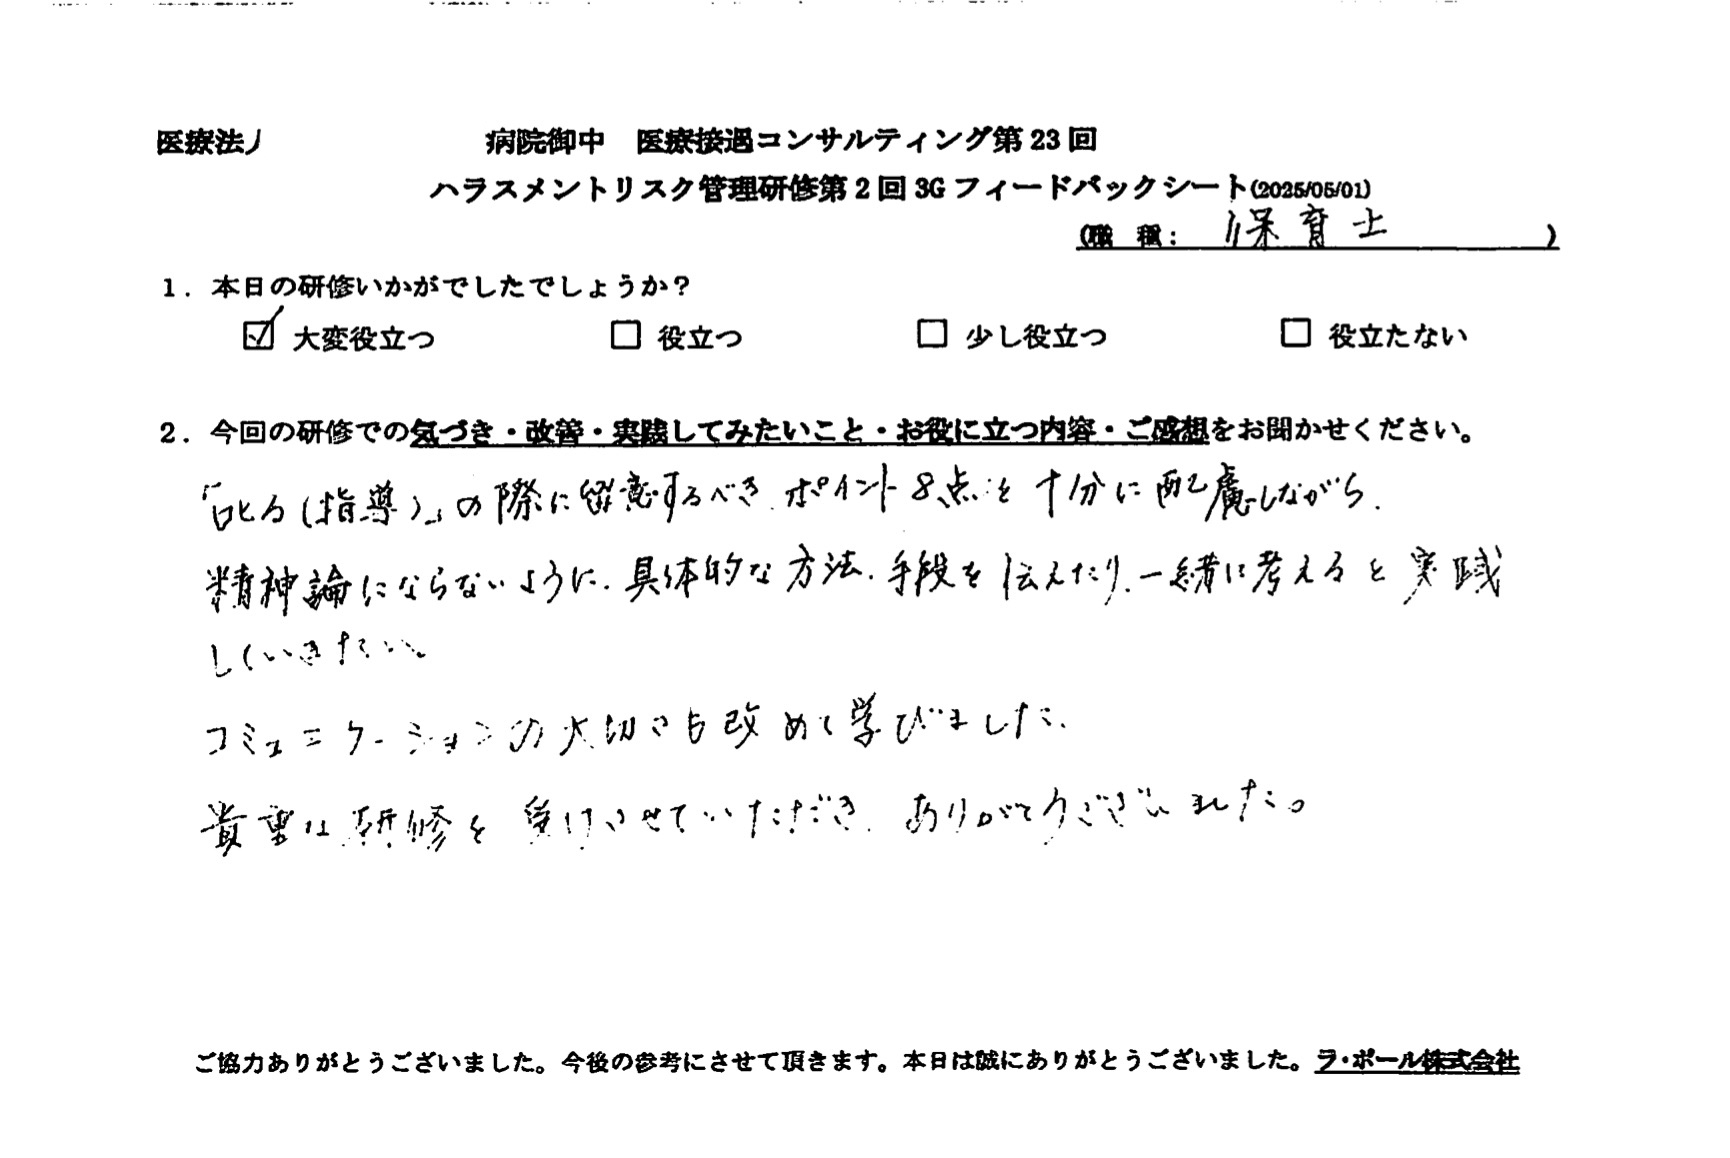 医療法 病院御中 医療接遇コンサルティング第23回
ハラスメントリスク管理研修第2回3Gフィードバックシート(2025/05/01)
(職 種: 保育士 )
1. 本日の研修いかがでしたでしょうか?
☑ 大変役立つ □ 役立つ □ 少し役立つ □ 役立たない
2. 今回の研修での気づき・改善・実践してみたいこと・お役に立つ内容・ご感想をお聞かせください。
「叱る(指導)」の際に留意するべきポイント8点を十分に配慮しながら、
精神論にならないように、具体的な方法、手段を伝えたり、一緒に考えると実践
していきたい。
コミュニケーションの大切さも改めて学びました。
貴重な研修を受けさせていただき、ありがとうございました。
ご協力ありがとうございました。今後の参考にさせて頂きます。本日は誠にありがとうございました。ラ・ポール株式会社